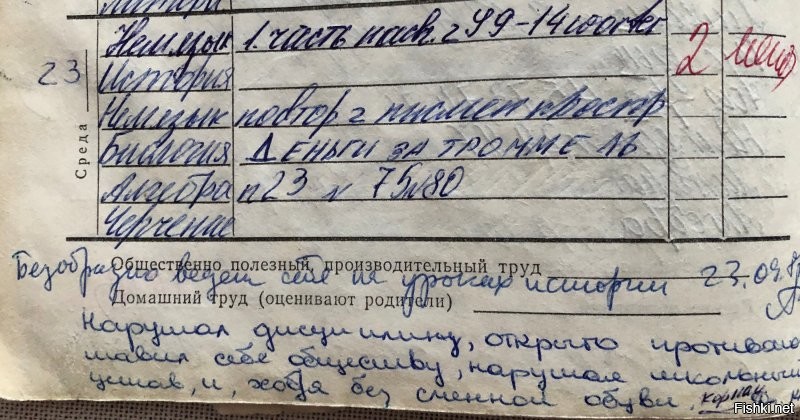 23
Среда
Нем.язык 1. часть 14 wörter 2
История
Нем.язык повтор
Биология Деньги за
Алгебра п 23 № 75, 80
Черчение
Общественно полезный, производительный труд
Безобразно ведет себя на уроках истории 23.09.
Домашний труд (оценивают родители)
Нарушал дисциплину, открыто противопо
ставил себя обществу, нарушал школьный
устав, и, ходя без сменной обуви,
Fishki.net